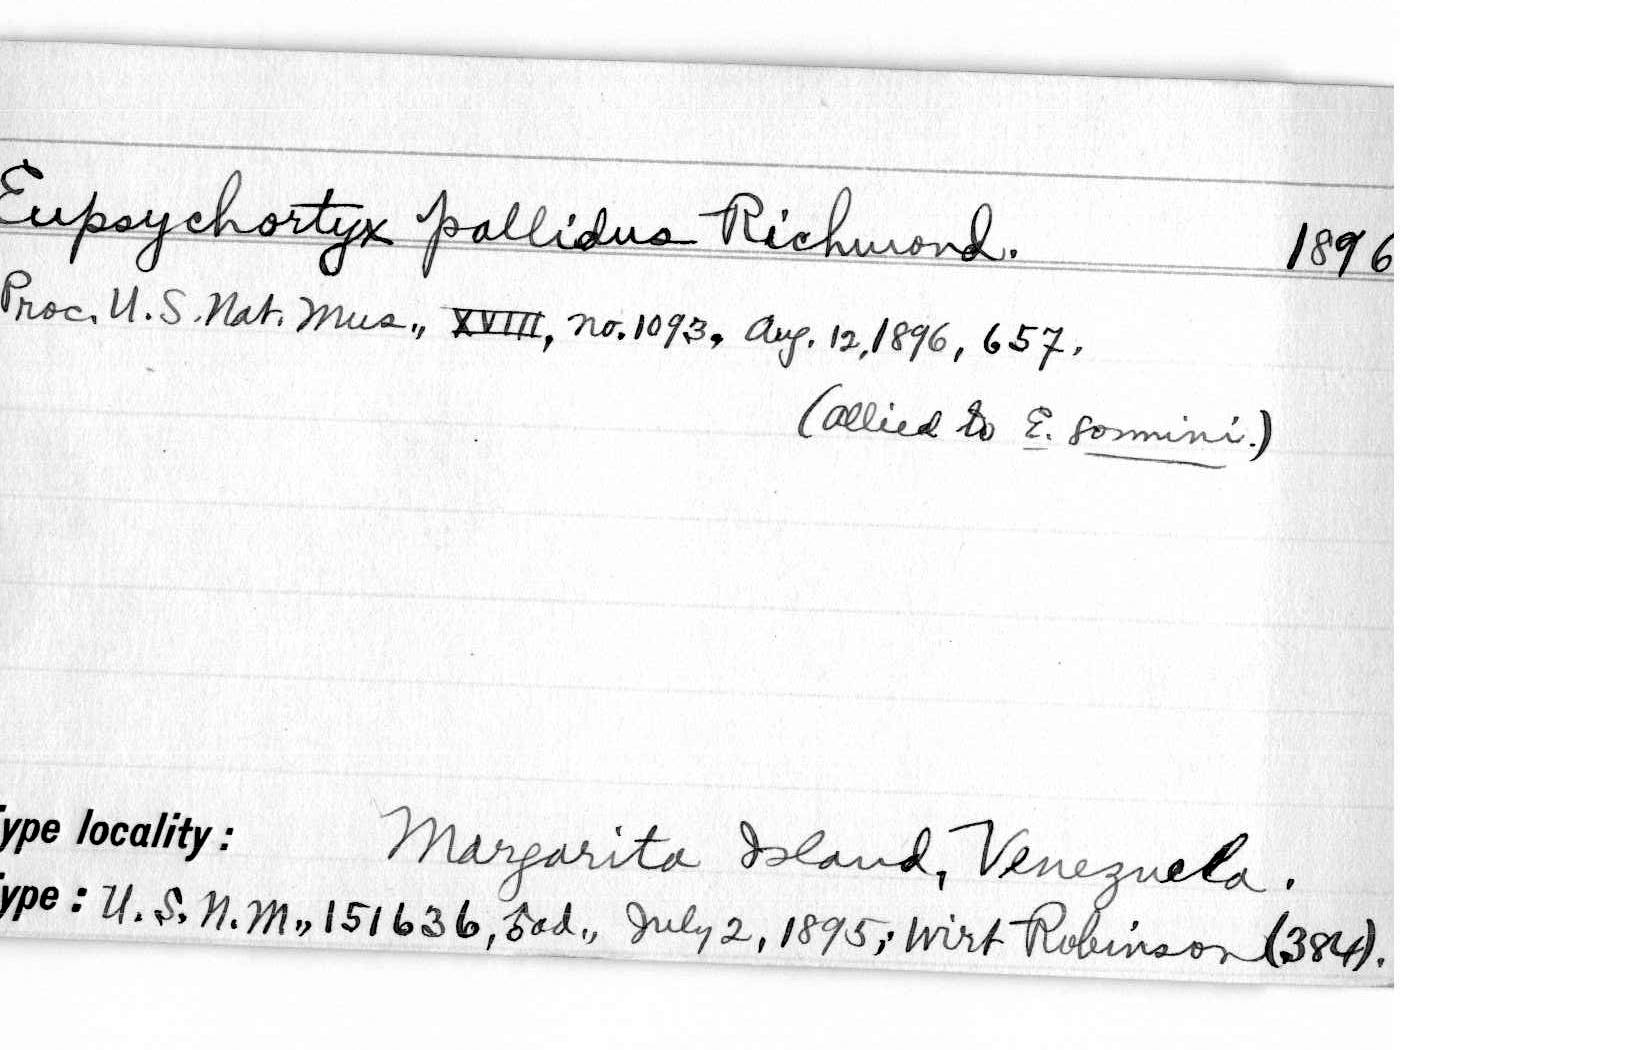 Eupsychortyx pallidus Richmond. 1896
Proc. U.S. Nat. Mus., XVIII, no. 1093, Aug. 12, 1896, 657.
(allied to E. sonnini.)
Type locality: Margarita Island, Venezuela.
Type: U.S.N.M., 151636, ad., July 2, 1895; Wirt Robinson (384).